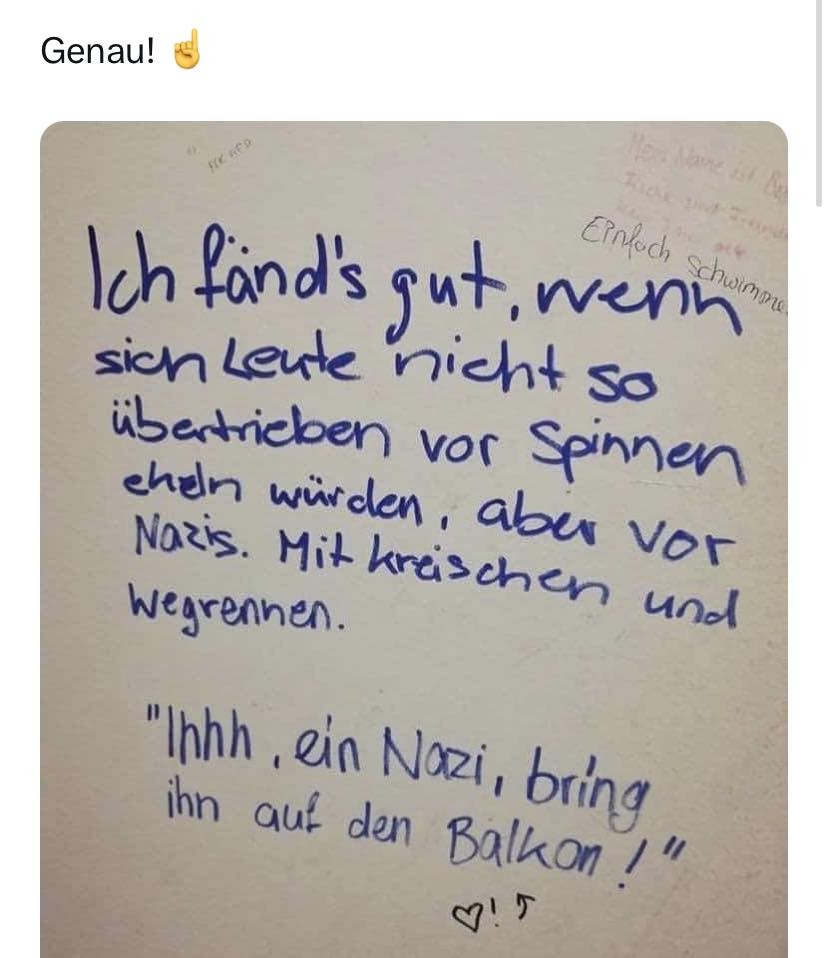 Genau! ☝️
Einfach Schwimme
Ich fänd's gut, wenn
sich Leute nicht so
übertrieben vor Spinnen
ekeln würden, aber vor
Nazis. Mit kreischen und
wegrennen.
"Ihhh, ein Nazi, bring
ihn auf den
Balkon!"
♡! ↑